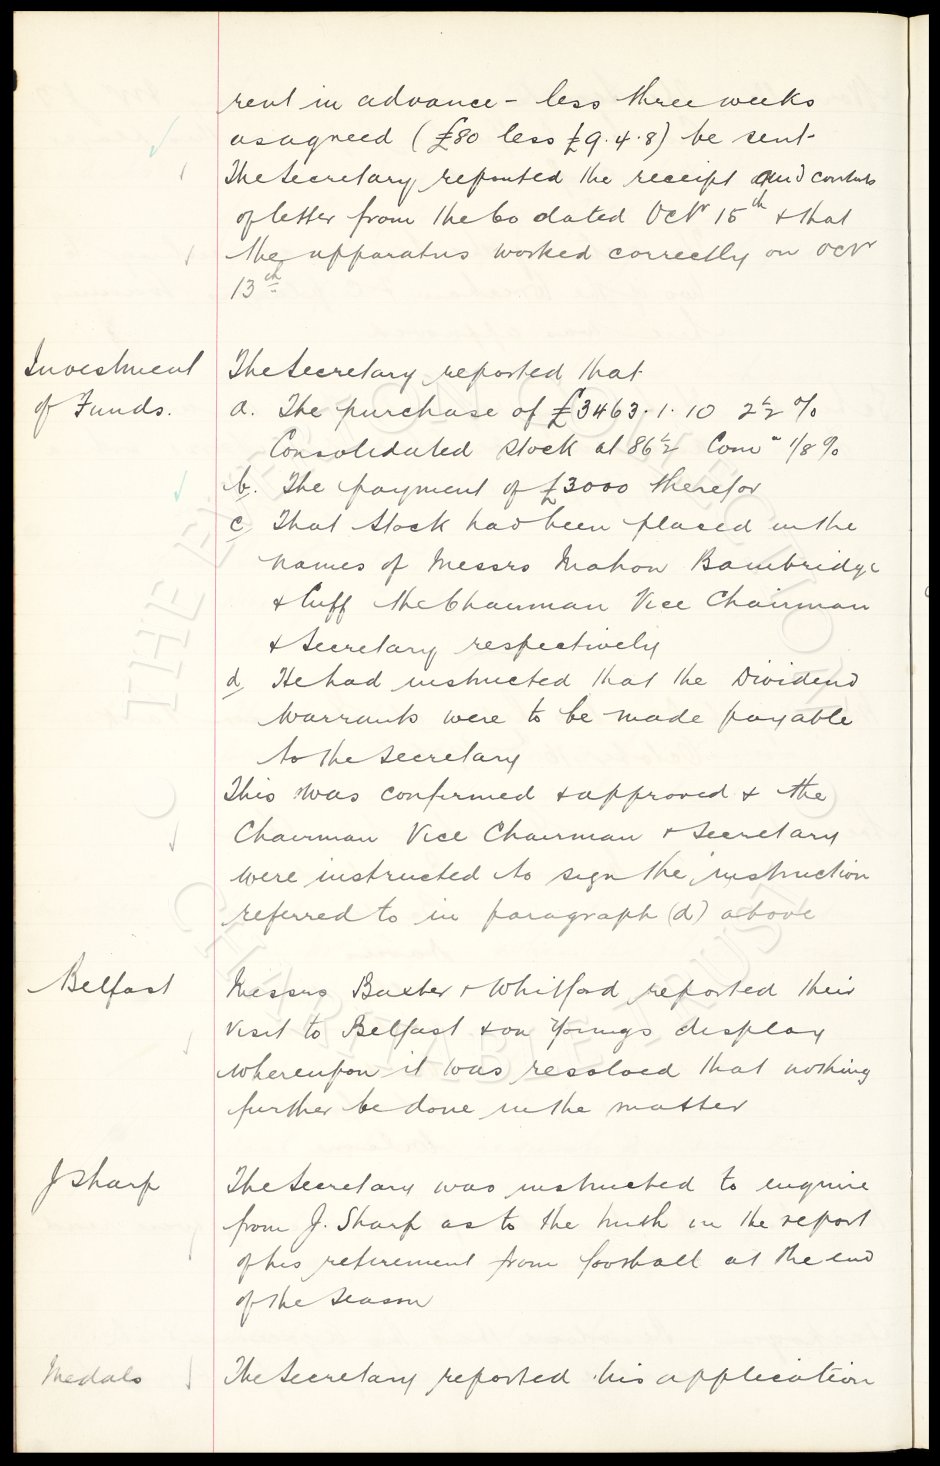 rent in advance - less three weeks
as agreed (£80 less £9.4.8) be sent.
The Secretary reported the receipt and contents
of letter from the Co dated Octr 15th & that
the apparatus worked correctly on Octr
13th
Investment
of Funds.
The Secretary reported that.
a. The purchase of £3463.1.10 2½%
Consolidated stock at 86½ Comn 1/8%
b. The payment of £3000 therefor
c That Stock had been placed in the
names of Messrs Mahon Bainbridge
& Cuff the Chairman Vice Chairman
& Secretary respectively
d He had instructed that the Dividend
Warrants were to be made payable
to the Secretary
This was confirmed & approved & the
Chairman Vice Chairman & Secretary
were instructed to sign the instruction
referred to in paragraph (d) above
Belfast
Messrs Baxter & Whitford reported their
visit to Belfast & on Youngs display
whereupon it was resolved that nothing
further be done in the matter
J Sharp
The Secretary was instructed to enquire
from J. Sharp as to the truth in the report
of his retirement from football at the end
of the Season
Medals
The Secretary reported his application
THE EVERTON COLLECTION
CHARITABLE TRUST